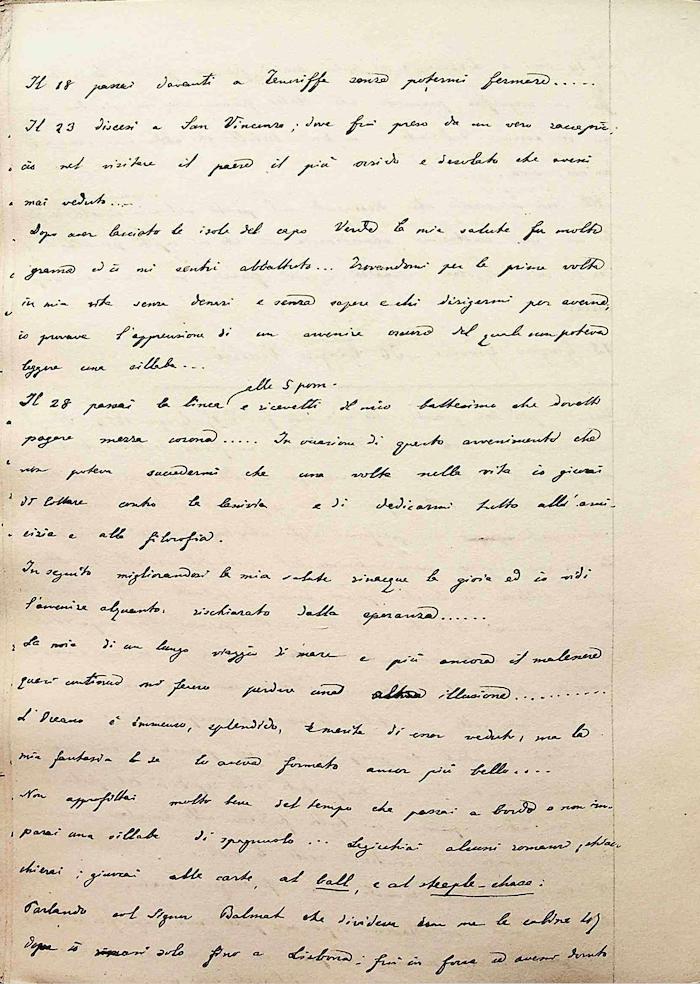 Il 18 passai davanti a Teneriffa senza potermi fermare.....
Il 23 discesi a San Vincenzo; dove fui preso da un vero raccapric-
cio nel visitare il paese il più arido e desolato che avessi
mai veduto....
Dopo aver lasciato le isole del capo Verde la mia salute fu molto
grama ed io mi sentii abbattuto... Trovandomi per la prima volta
in mia vita senza denari e senza sapere a chi dirigermi per averne,
io provava l'apprensione di un avvenire oscuro del quale non poteva
leggere una sillaba....
alle 5 pom.
Il 28 passai la linea e ricevetti il mio battesimo che dovetti
pagare mezza corona..... In occasione di questo avvenimento che
non poteva succedermi che una volta nella vita io giurai
di lottare contro la lascivia e di dedicarmi tutto all'ami-
cizia e alla filosofia.
In seguito migliorandosi la mia salute rinacque la gioia ed io vidi
l'avvenire alquanto rischiarato dalla speranza......
La noia di un lungo viaggio di mare e più ancora il malessere
quasi continuo mi fecero perdere una illusione..........
L'Oceano è immenso, splendido, e merita di esser veduto, ma la
mia fantasia lo aveva formato ancor più bello....
Non approfittai molto bene del tempo che passai a bordo e non im-
parai una sillaba di spagnuolo... Lessicchiai alcuni romanzi,
chierai; giuocai alle carte, al ball, e al steeple-chase:
Parlando col Signor Balmat che divideva con me la cabina 49
dopo io solo fino a Lisbona; fui in forse se avessi dovuto